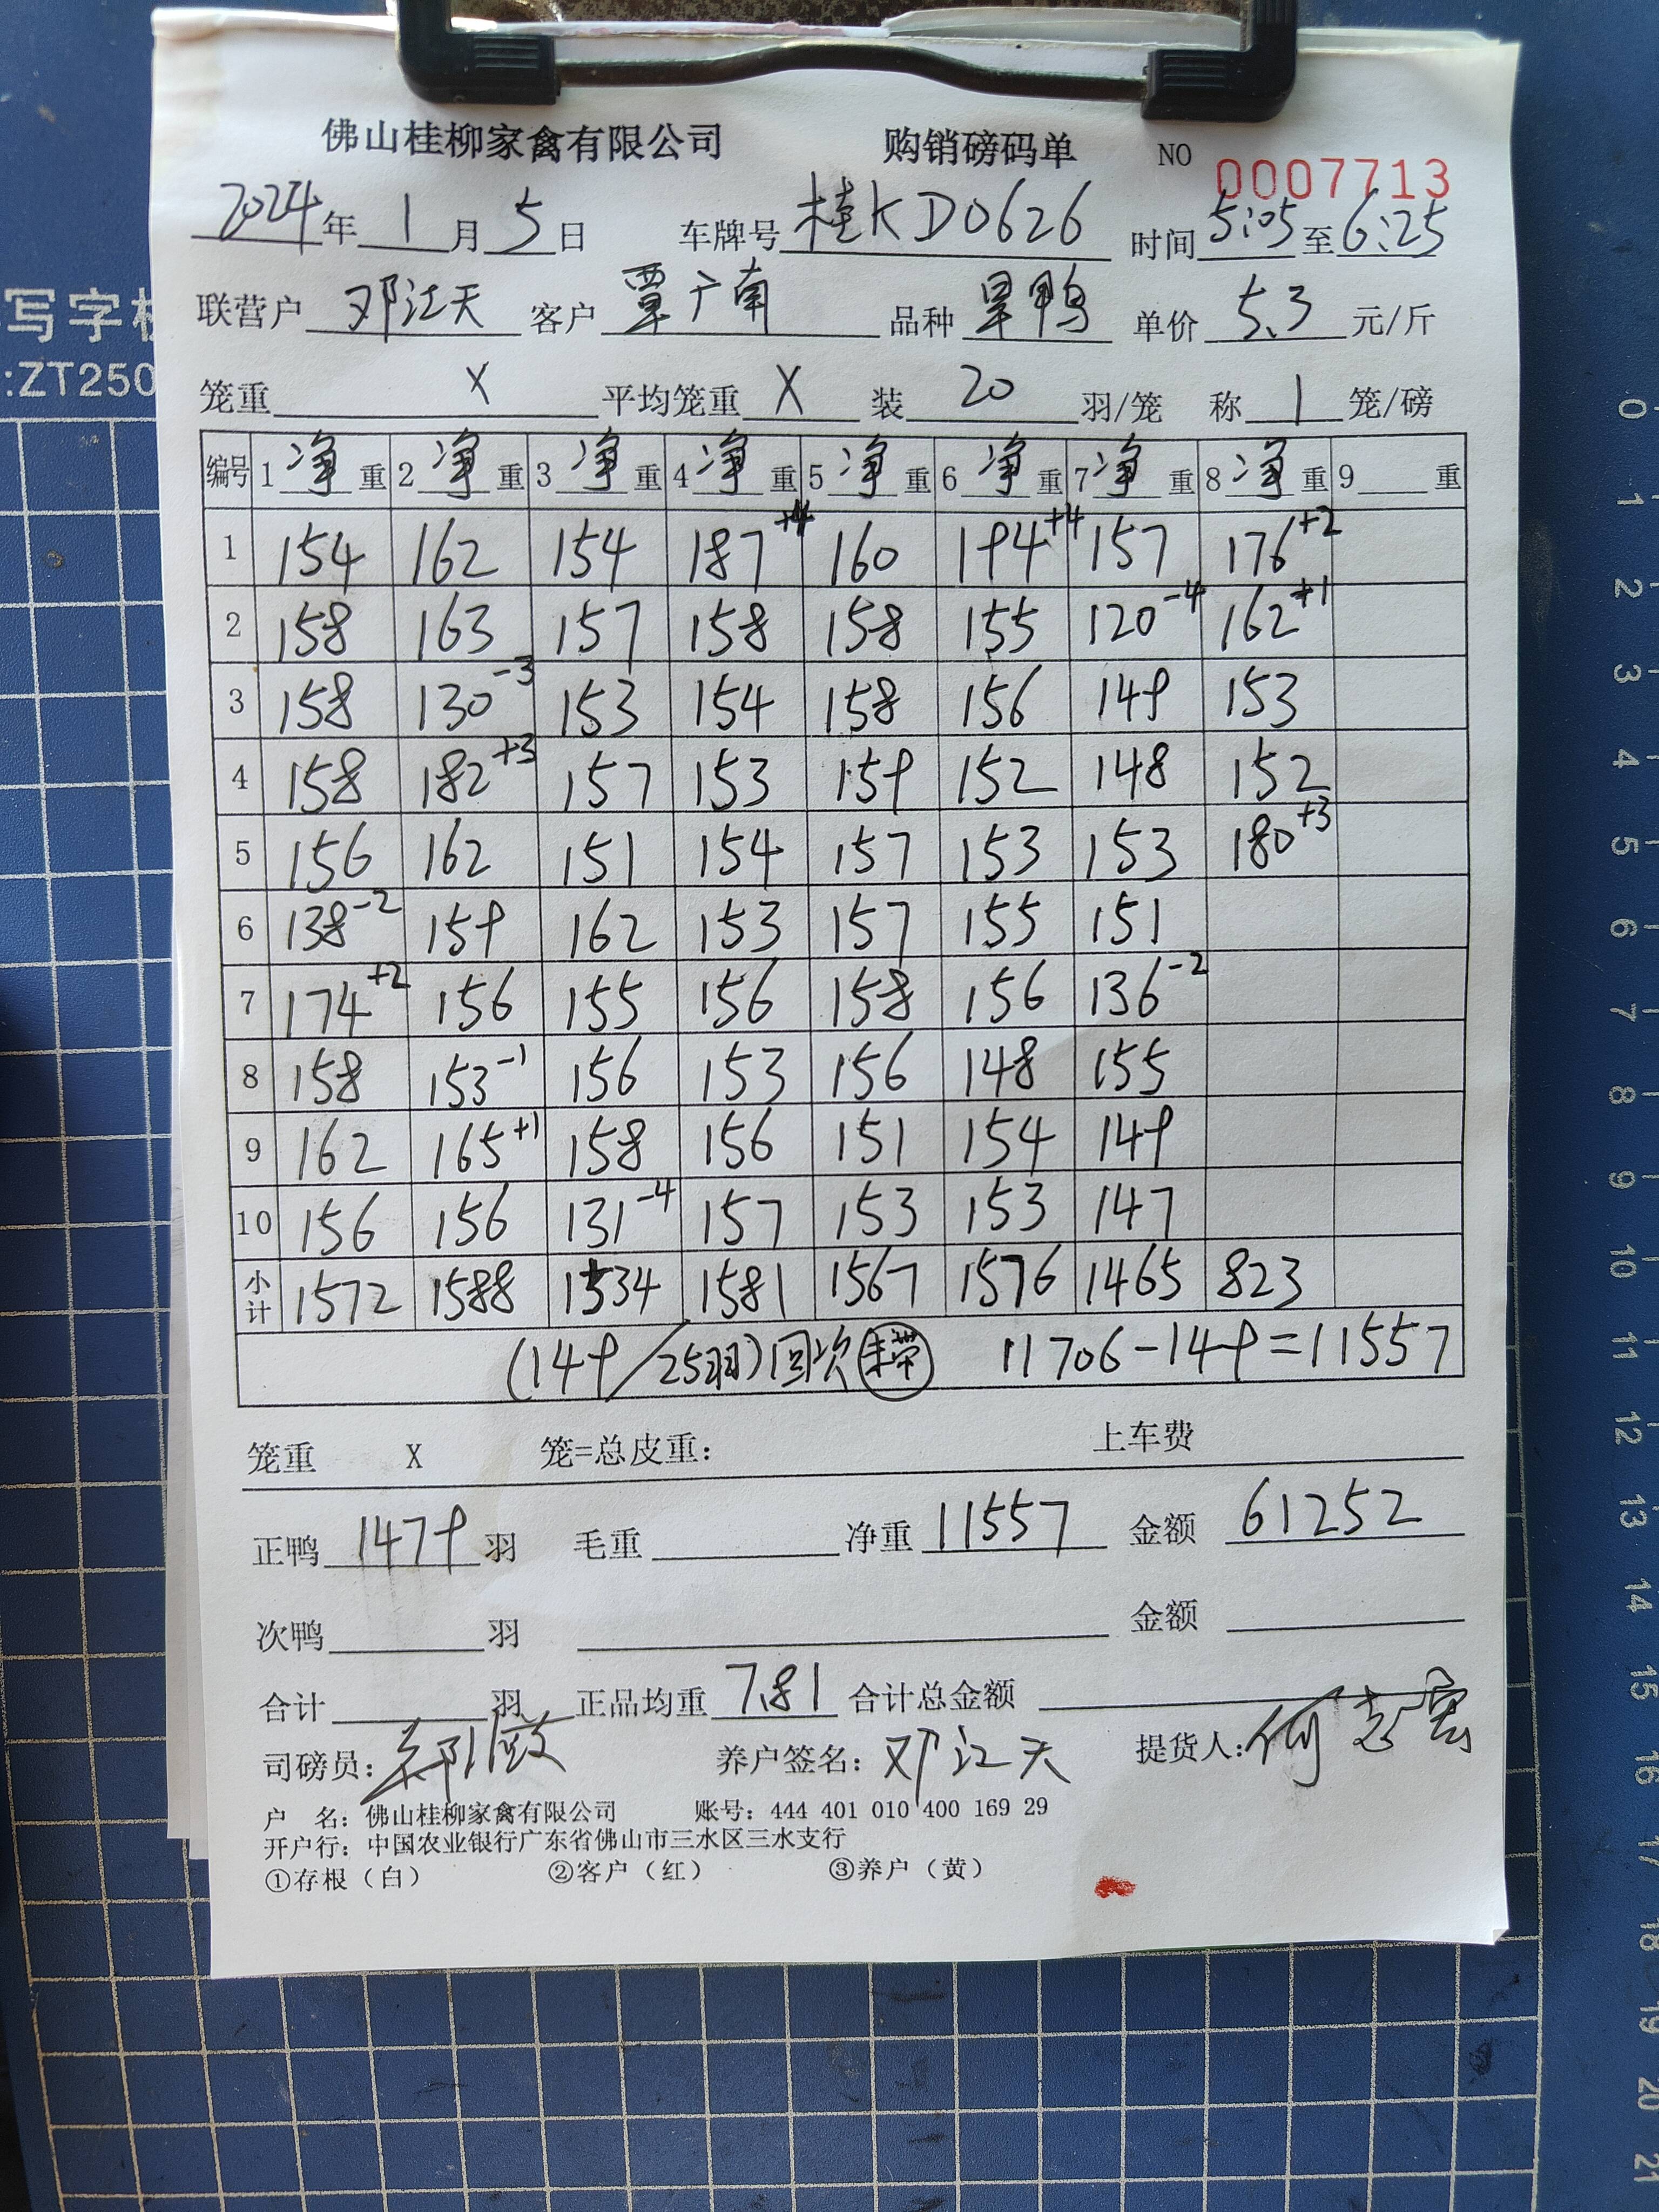 佛山桂柳家禽有限公司 购销磅码单 NO 0007713
2024年1月5日 车牌号 桂KD0626 时间 5:05至6:25
联营户 邓江天 客户 覃广南 品种 旱鸭 单价 5.3 元/斤
笼重 X 平均笼重 X 装 20 羽/笼 称 1 笼/磅
编号 1净重 2净重 3净重 4净重 5净重 6净重 7净重 8净重 9 重
1 154 162 154 187+4 160 194+4 157 176+2
2 158 163 157 158 158 155 120-4 162+1
3 158 130-3 153 154 158 156 149 153
4 158 182+3 157 153 159 152 148 152
5 156 162 151 154 157 153 153 180+3
6 138-2 159 162 153 157 155 151
7 174+2 156 155 156 158 156 136-2
8 158 153-1 156 153 156 148 155
9 162 165+1 158 156 151 154 149
10 156 156 131-4 157 153 153 147
小计 1572 1588 1534 1581 1567 1576 1465 823
(149/25羽)回次 未带 11706-149=11557
笼重 X 笼=总皮重: 上车费
正鸭 1479 羽 毛重 净重 11557 金额 61252
次鸭 羽 金额
合计 羽 正品均重 7.81 合计总金额
司磅员: 养户签名: 邓江天 提货人: 何志
户 名: 佛山桂柳家禽有限公司 账号: 444 401 010 400 169 29
开户行: 中国农业银行广东省佛山市三水区三水支行
①存根（白） ②客户（红） ③养户（黄）
写字
:ZT250
0
1
2
3
4
5
6
7
8
9
10
11
12
13
14
15
16
17
18
19
20
21